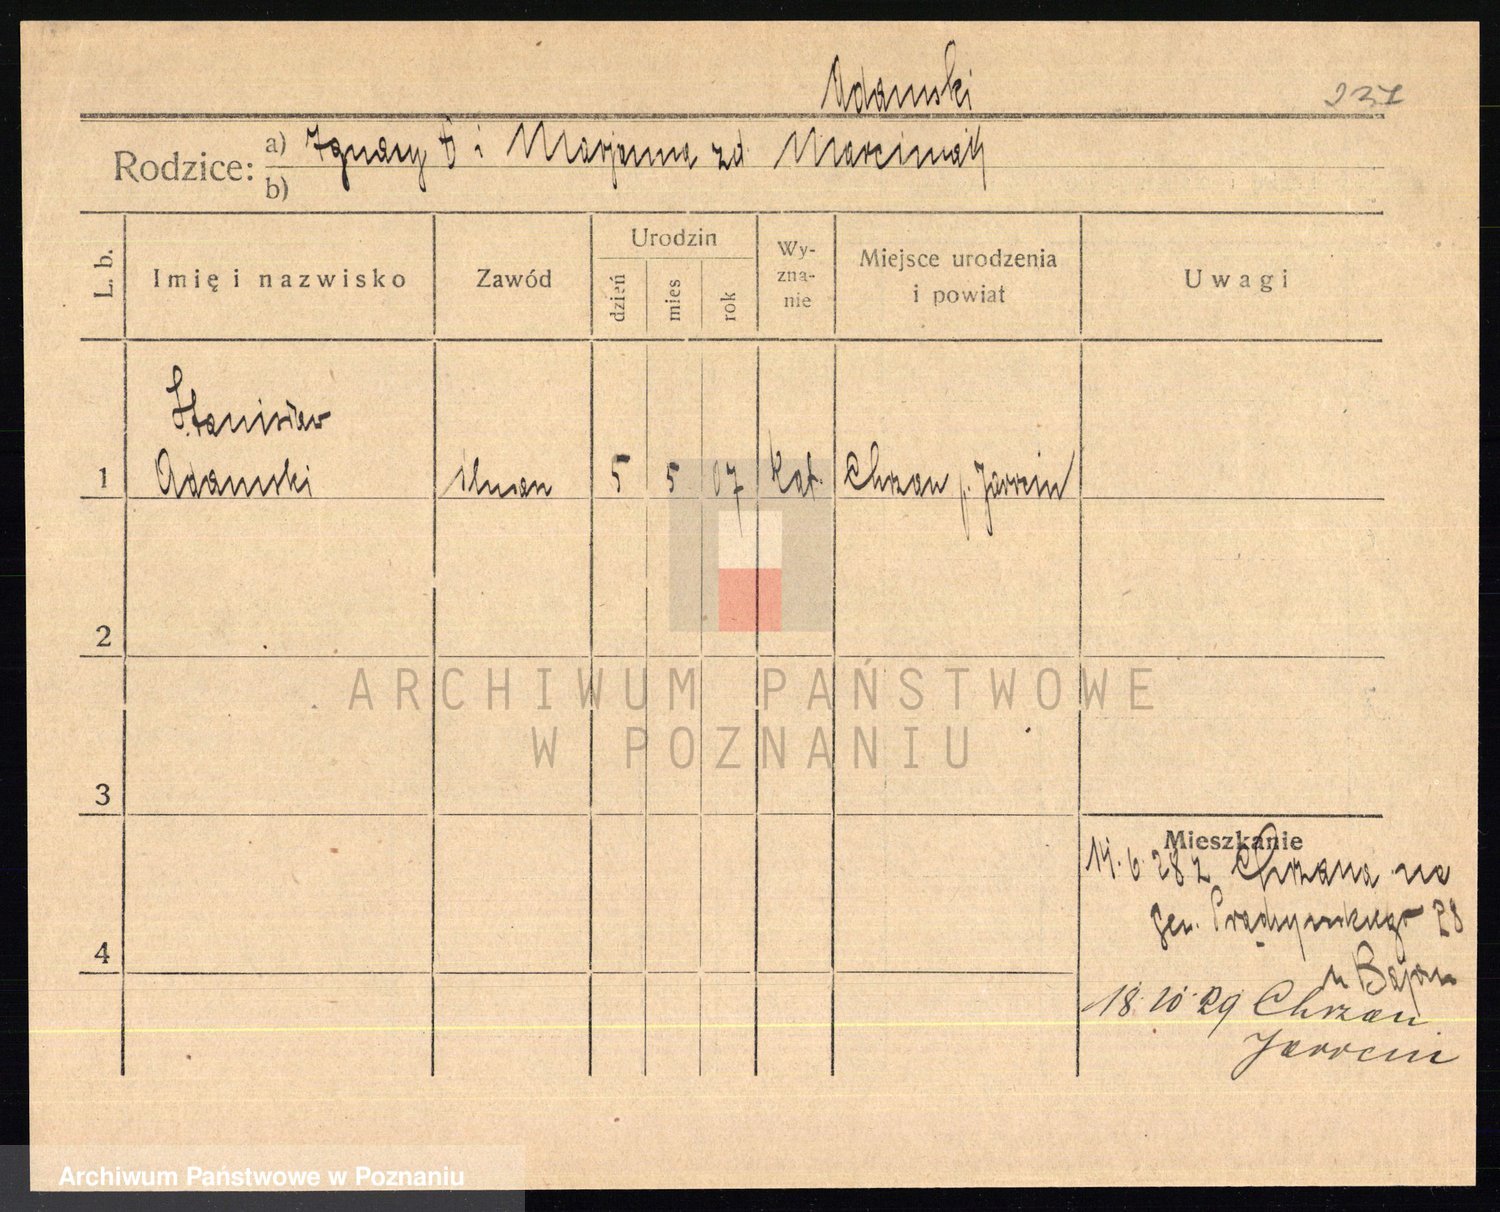 Adamski
Rodzice:
a) Ignacy i Marjanna zd Marciniak
b)
L. b.
Imię i nazwisko
Zawód
Urodzin
dzień
mies
rok
Wy-
zna-
nie
Miejsce urodzenia
i powiat
Uwagi
Stanisław
1 Adamski 5 5 07 kat. Chrzan p. Jarocin
2
3
4
Mieszkanie
14.6.28 z Chrzana na
gen. Prądzyńskiego 28
u
18.10.29 Chrzan
Jarocin
ARCHIWUM PAŃSTWOWE
W POZNANIU
Archiwum Państwowe w Poznaniu